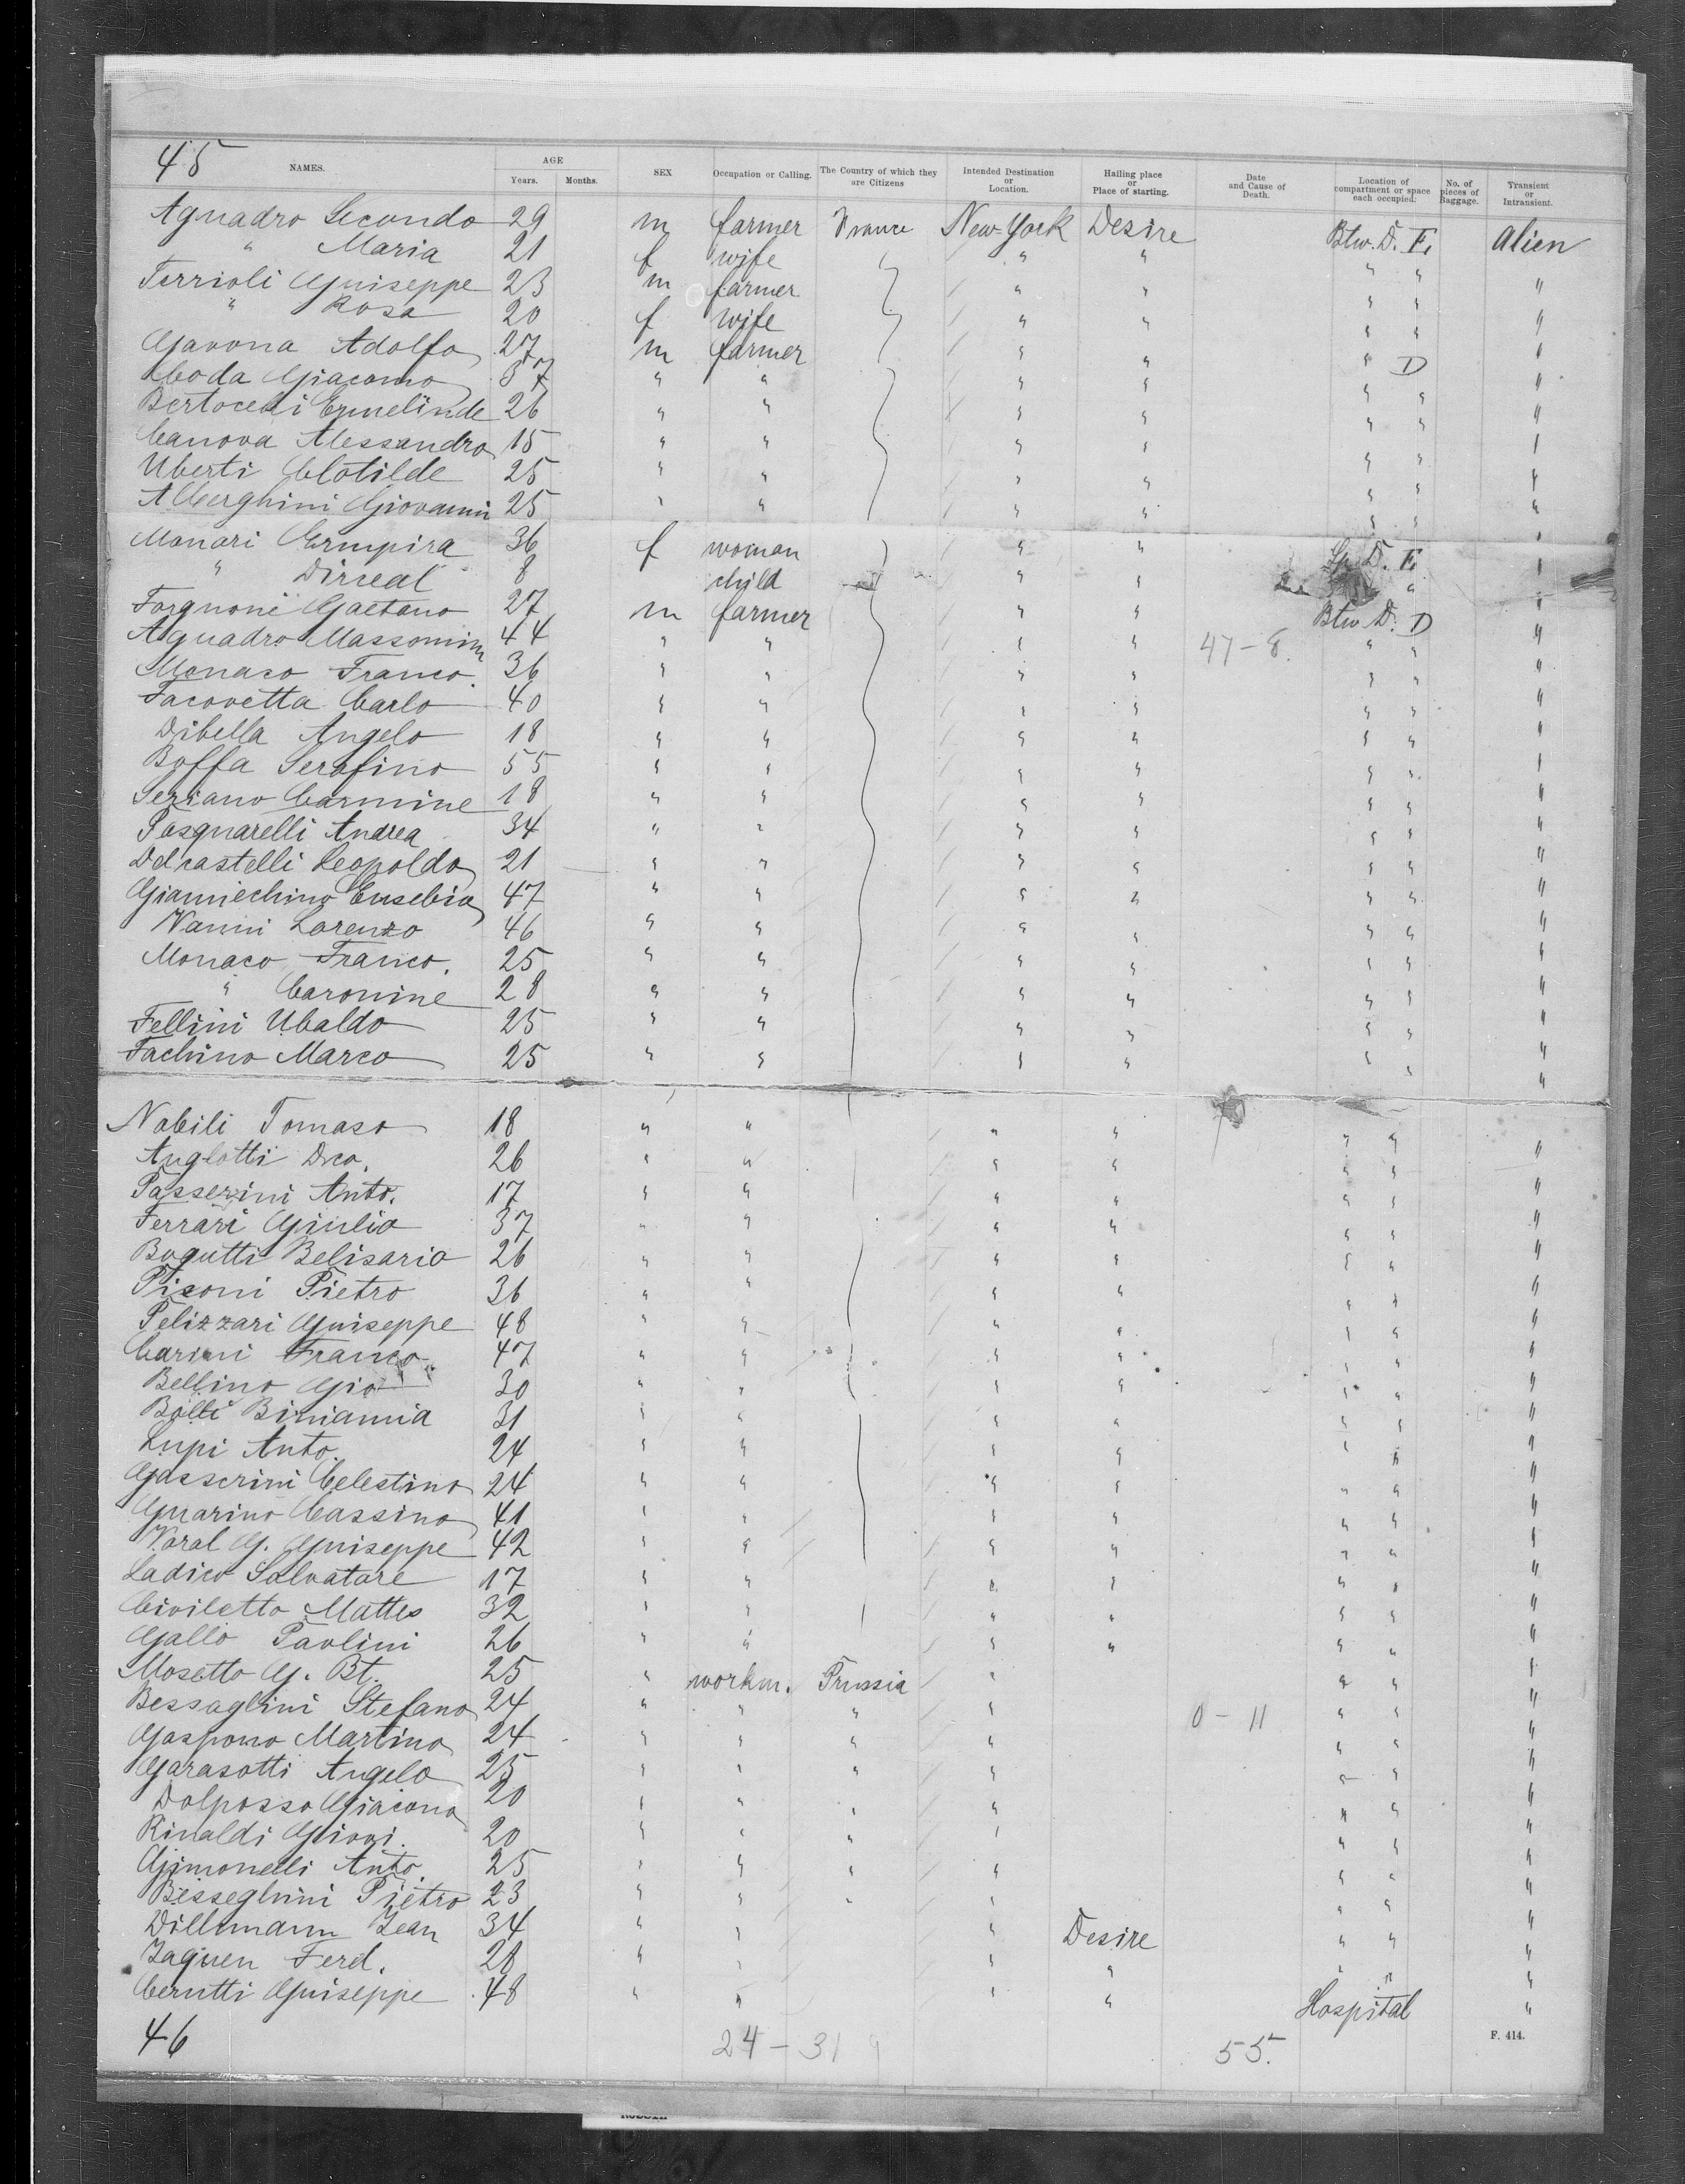 45
NAMES. AGE Years. Months. SEX Occupation or Calling. The Country of which they are Citizens Intended Destination or Location. Hailing place or Place of starting. Date and Cause of Death. Location of compartment or space each occupied. No. of pieces of Baggage. Transient or Intransient.
Aguadro Secondo 29 m farmer France New-York Desire Btw. D. F. Alien
" Maria 21 f wife " " " "
Ferrioli Guiseppe 23 m farmer " " " " "
" Rosa 20 f wife " " " " "
Gavona Adolfo 27 m farmer " " " D "
Coda Giacomo 37 " " " " " " "
Bertocchi Ermelinde 26 " " " " " " "
Canova Alessandro 15 " " " " " " "
Uberti Clotilde 25 " " " " " " "
Alberghini Giovanni 25 " " " " " " "
Monari Ermpira 36 f woman " " D. F. "
" Dirceal 8 child " " " "
Forgnoni Gaetano 27 m farmer " " Btw D. D "
Aguadro Massomim 44 " " " " 47-8. " " "
Monaco Franco. 36 " " " " " " "
Iacovetta Carlo 40 " " " " " " "
Dibella Angelo 18 " " " " " " "
Boffa Serafino 55 " " " " " " "
Seriano Carmine 18 " " " " " " "
Pasquarelli Andrea 34 " " " " " " "
Delcastelli Leopoldo 21 " " " " " " "
Giannechino Eusebio 47 " " " " " " "
Nanni Lorenzo 46 " " " " " " "
Monaco Franco. 25 " " " " " " "
" Caronine 28 " " " " " " "
Fellini Ubaldo 25 " " " " " " "
Fachino Marco 25 " " " " " " "
Nobili Tomaso 18 " " " " " " "
Anglotti Dco. 26 " " " " " " "
Passerini Anto. 17 " " " " " " "
Ferrari Giulio 37 " " " " " " "
Bogutti Belisario 26 " " " " " " "
Pisoni Pietro 36 " " " " " " "
Pelizzari Guiseppe 48 " " " " " " "
Carini Franco. 47 " " " " " " "
Bellino Gio 30 " " " " " " "
Bolli Biniamia 31 " " " " " " "
Lupi Anto. 24 " " " " " " "
Gasserini Celestino 24 " " " " " " "
Guarino Cassino 41 " " " " " " "
Voral G. Guiseppe 42 " " " " " " "
Ladico Salvatare 17 " " " " " " "
Civiletto Matteo 32 " " " " " " "
Gallo Paolini 26 " " " " " " "
Mosetto G. Bt. 25 " workm. Prussia " " " "
Bessaghini Stefano 24 " " " " 0-11 " " "
Gaspono Martino 24 " " " " " " "
Garasotti Angelo 25 " " " " " " "
Dolposso Giacono 20 " " " " " " "
Rinaldi Giovi. 20 " " " " " " "
Gimonelli Anto. 25 " " " " " " "
Besseghini Pietro 23 " " " " " " "
Dillmann Jean 34 " " " Desire " " "
Jaquen Ferd. 28 " " " " " " "
Cerutti Guiseppe 48 " " " " Hospital "
46 24-31 9 55. F. 414.